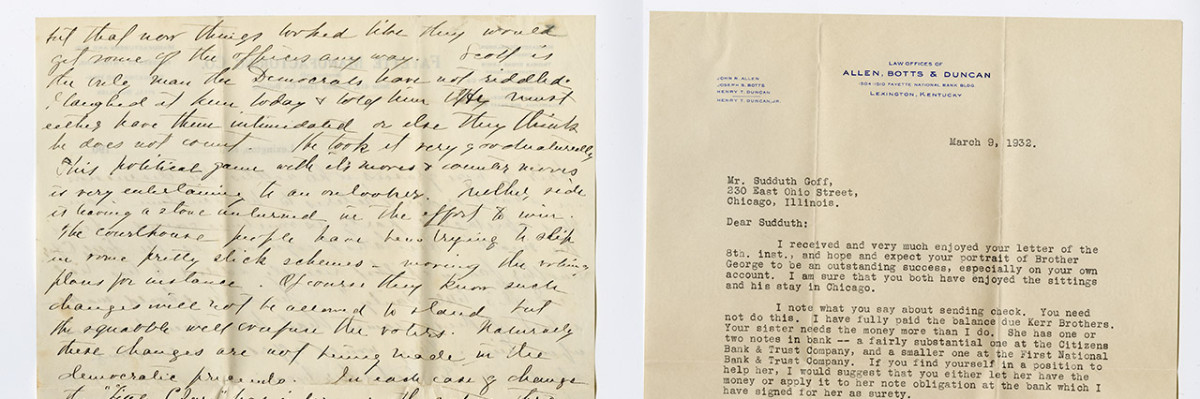 but that now things looked like they would
get some of the offices any way. Scott is
the only man the Democrats have not riddled.
I laughed at him today & told him they must
either have them intimidated or else they think
he does not count. He took it very goodnaturedly
This political game with its moves & counter moves
is very entertaining to an onlooker. Neither side
is leaving a stone unturned in the effort to win.
The courthouse people have been trying to slip
in some pretty slick schemes - moving the voting
places for instance. Of course they know such
changes will not be allowed to stand but
the squabble will confuse the voters. Naturally
these changes are not being made in the
democratic precincts. In each case of change
LAW OFFICES OF
ALLEN, BOTTS & DUNCAN
FAYETTE NATIONAL BANK BLDG.
LEXINGTON, KENTUCKY
JOHN R. ALLEN
JOSEPH S. BOTTS
HENRY T. DUNCAN
HENRY T. DUNCAN, JR.
March 9, 1932.
Mr. Sudduth Goff,
230 East Ohio Street,
Chicago, Illinois.
Dear Sudduth:
I received and very much enjoyed your letter of the
8th. inst., and hope and expect your portrait of Brother
George to be an outstanding success, especially on your own
account. I am sure that you both have enjoyed the sittings
and his stay in Chicago.
I note what you say about sending check. You need
not do this. I have fully paid the balance due Kerr Brothers.
Your sister needs the money more than I do. She has one or
two notes in bank -- a fairly substantial one at the Citizens
Bank & Trust Company, and a smaller one at the First National
Bank & Trust Company. If you find yourself in a position to
help her, I would suggest that you either let her have the
money or apply it to her note obligation at the bank which I
have signed for her as surety.